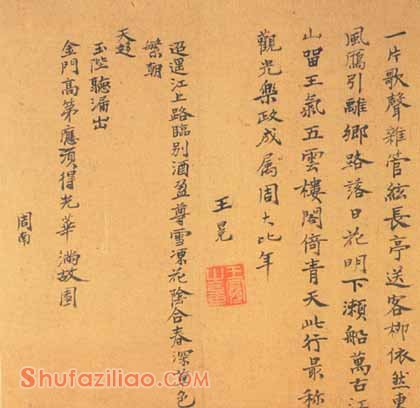 一片歌聲雜管絃長亭送客柳依然東
風鴈引離鄉路落日花明下瀨船萬古江
山留王氣五雲樓閣倚青天此行最称
觀光樂政成属周大比年
王冕
迢遞江上路臨別酒盈尊雪凍花陰合春深草色
繁朝
天趍
玉陛聽漏出
金門高第應須得光華滿故園
周南
Shufaziliao.com